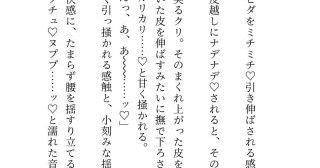 ヒダをミチミチ♡引き伸ばされる感
越しにナデナデ♡されると、その
るクリ。そのまくれ上がった皮を
いた皮を伸ばすみたいに撫で下ろさ
リカリ……♡と甘く掻かれる。
っ、あ、あ〜〜……ッ♡」
く引っ掻かれる感触と、小刻みな揺
快感に、たまらず腰を揺すり立てる
チュ♡ヌプププ……ッ♡と濡れた音